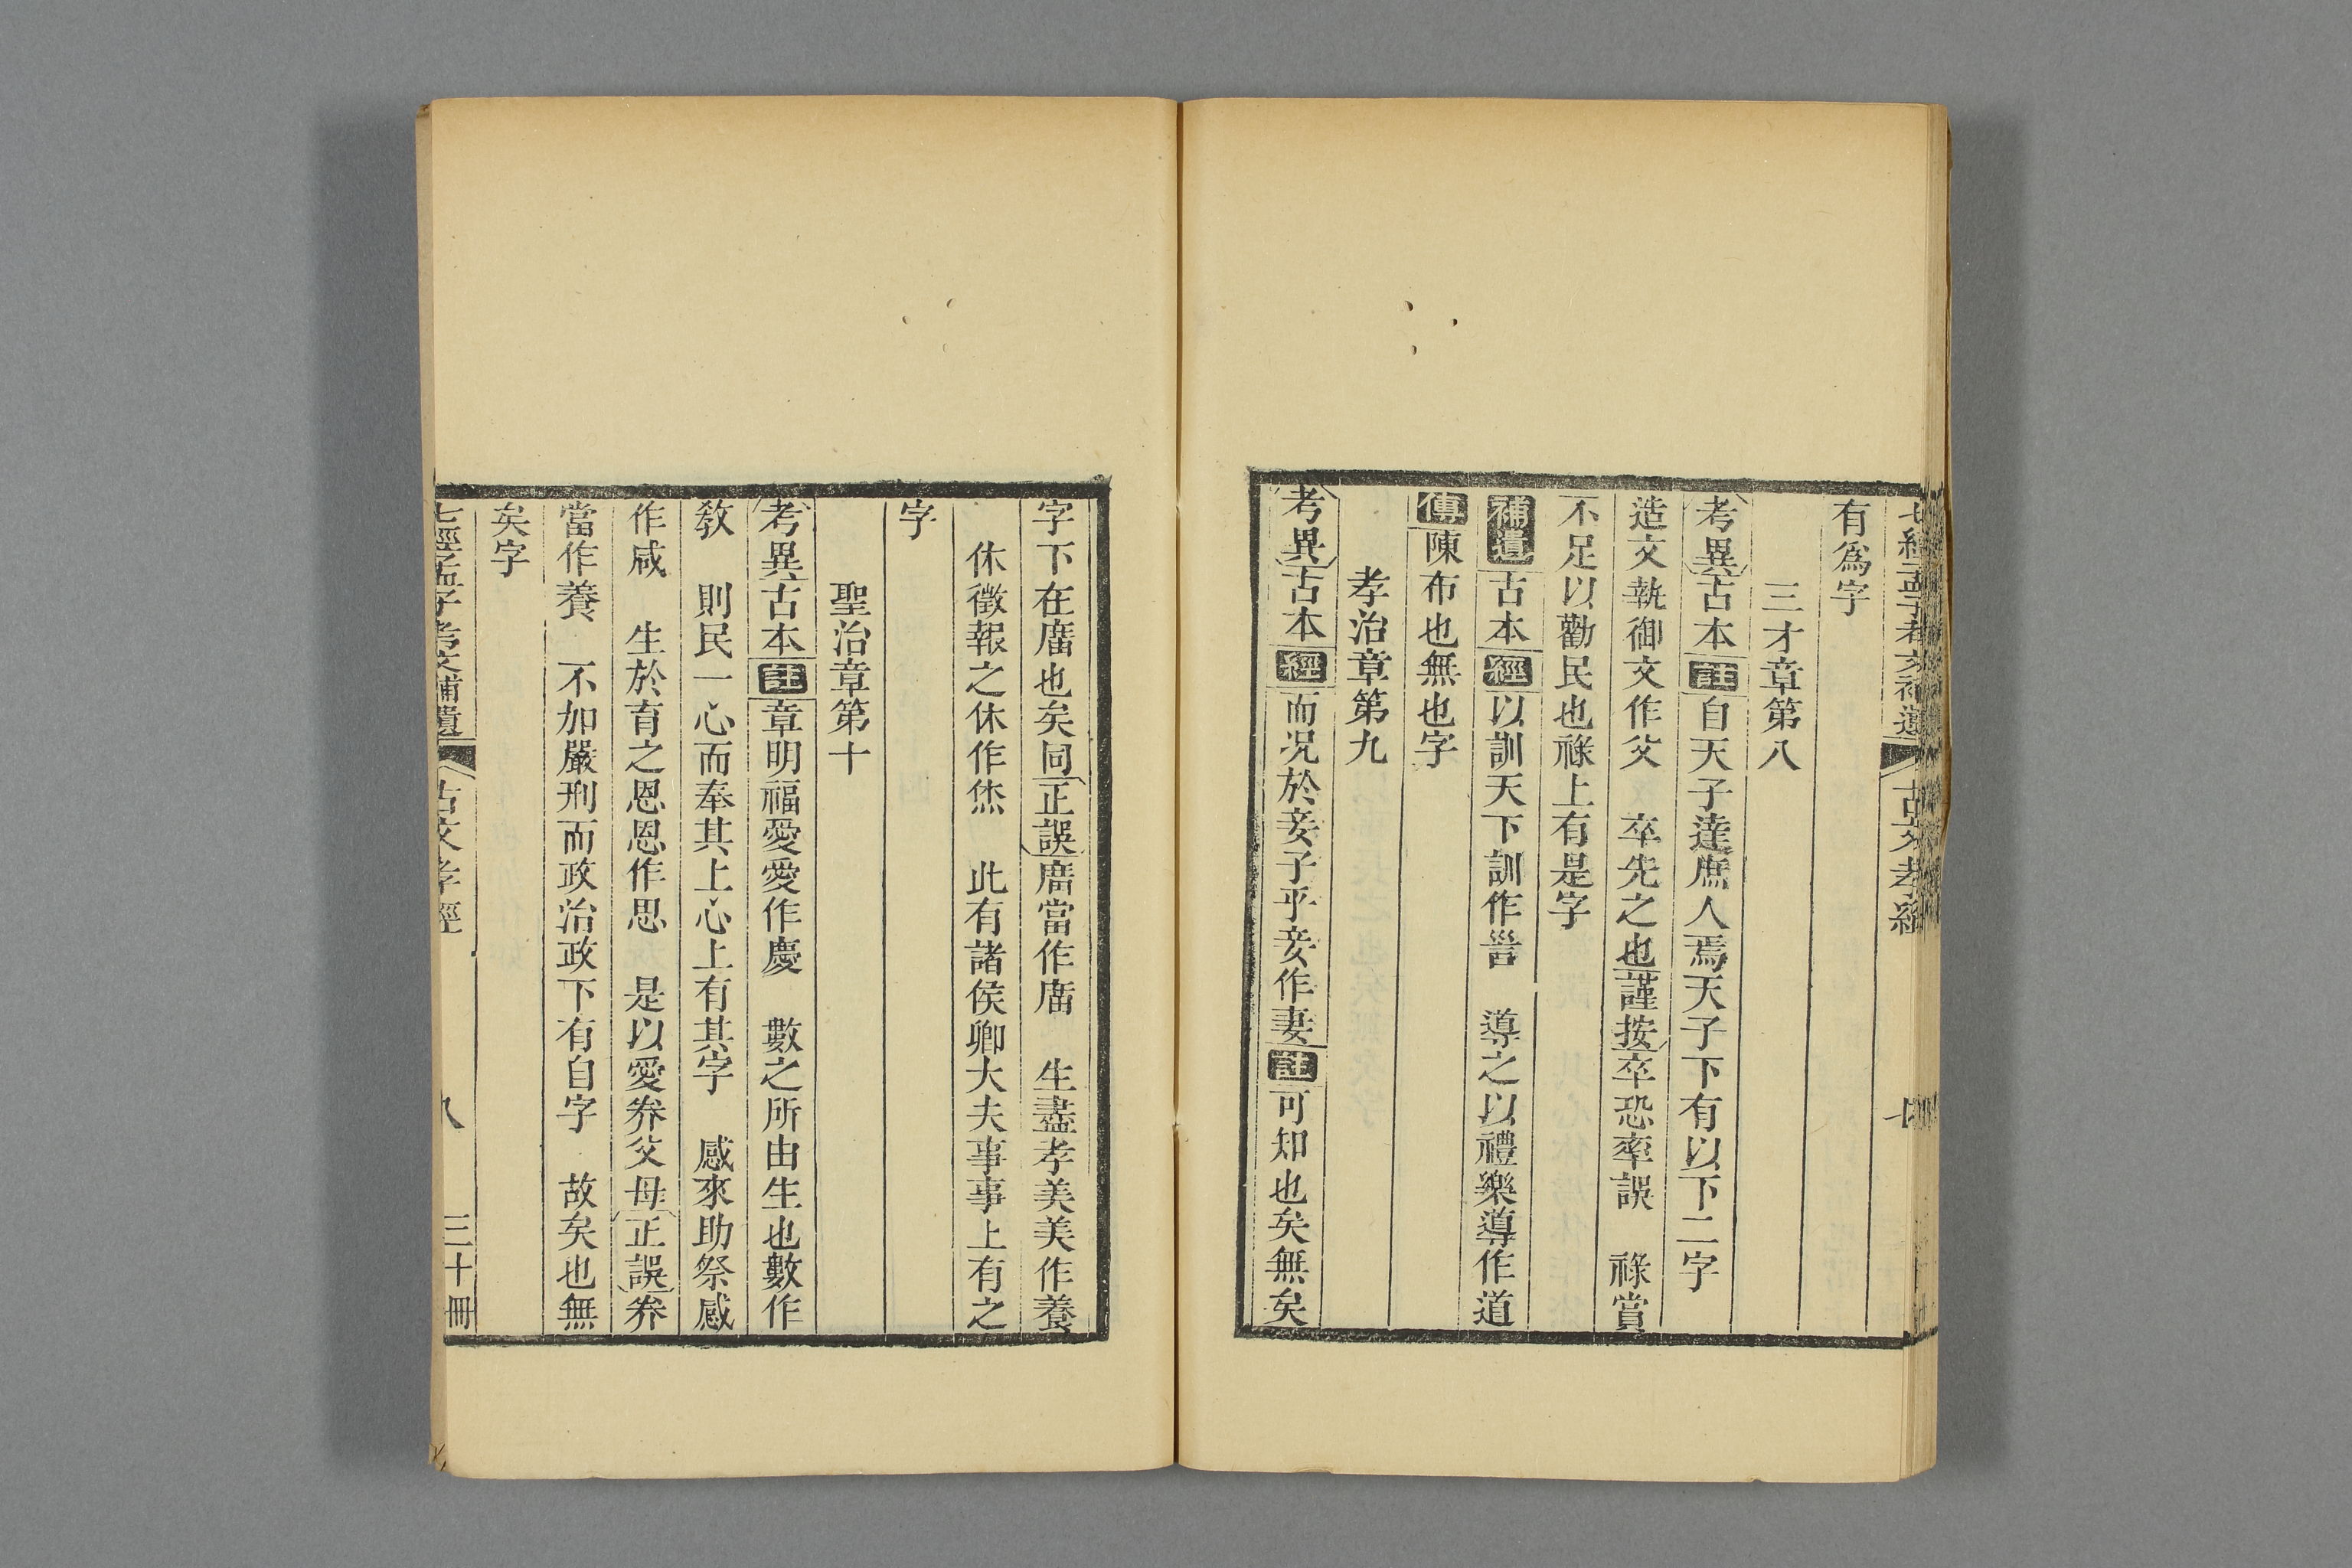 七經孟子考文補遺 古文孝經
有爲字
三才章第八
考異古本註自天子達庶人焉天子下有以下二字
造文執御文作父 卒先之也謹按卒恐率誤 祿賞
不足以勸民也祿上有是字
補遺古本經以訓天下訓作𧥣 導之以禮樂導作道
傳陳布也無也字
孝治章第九
考異古本經而况於妾子乎妾作妻註可知也矣無矣
字下在廣也矣同正誤廣當作廣 生盡孝美美作養
休徵報之休作烋 此有諸侯卿大夫事事上有之
字
聖治章第十
考異古本註章明福愛愛作慶 數之所由生也數作
敎 則民一心而奉其上心上有其字 感來助祭感
作咸 生於育之恩恩作思 是以愛养父母正誤养
當作養 不加嚴刑而政治政下有自字 故矣也無
矣字
七經孟子考文補遺 古文孝經 八 三十冊